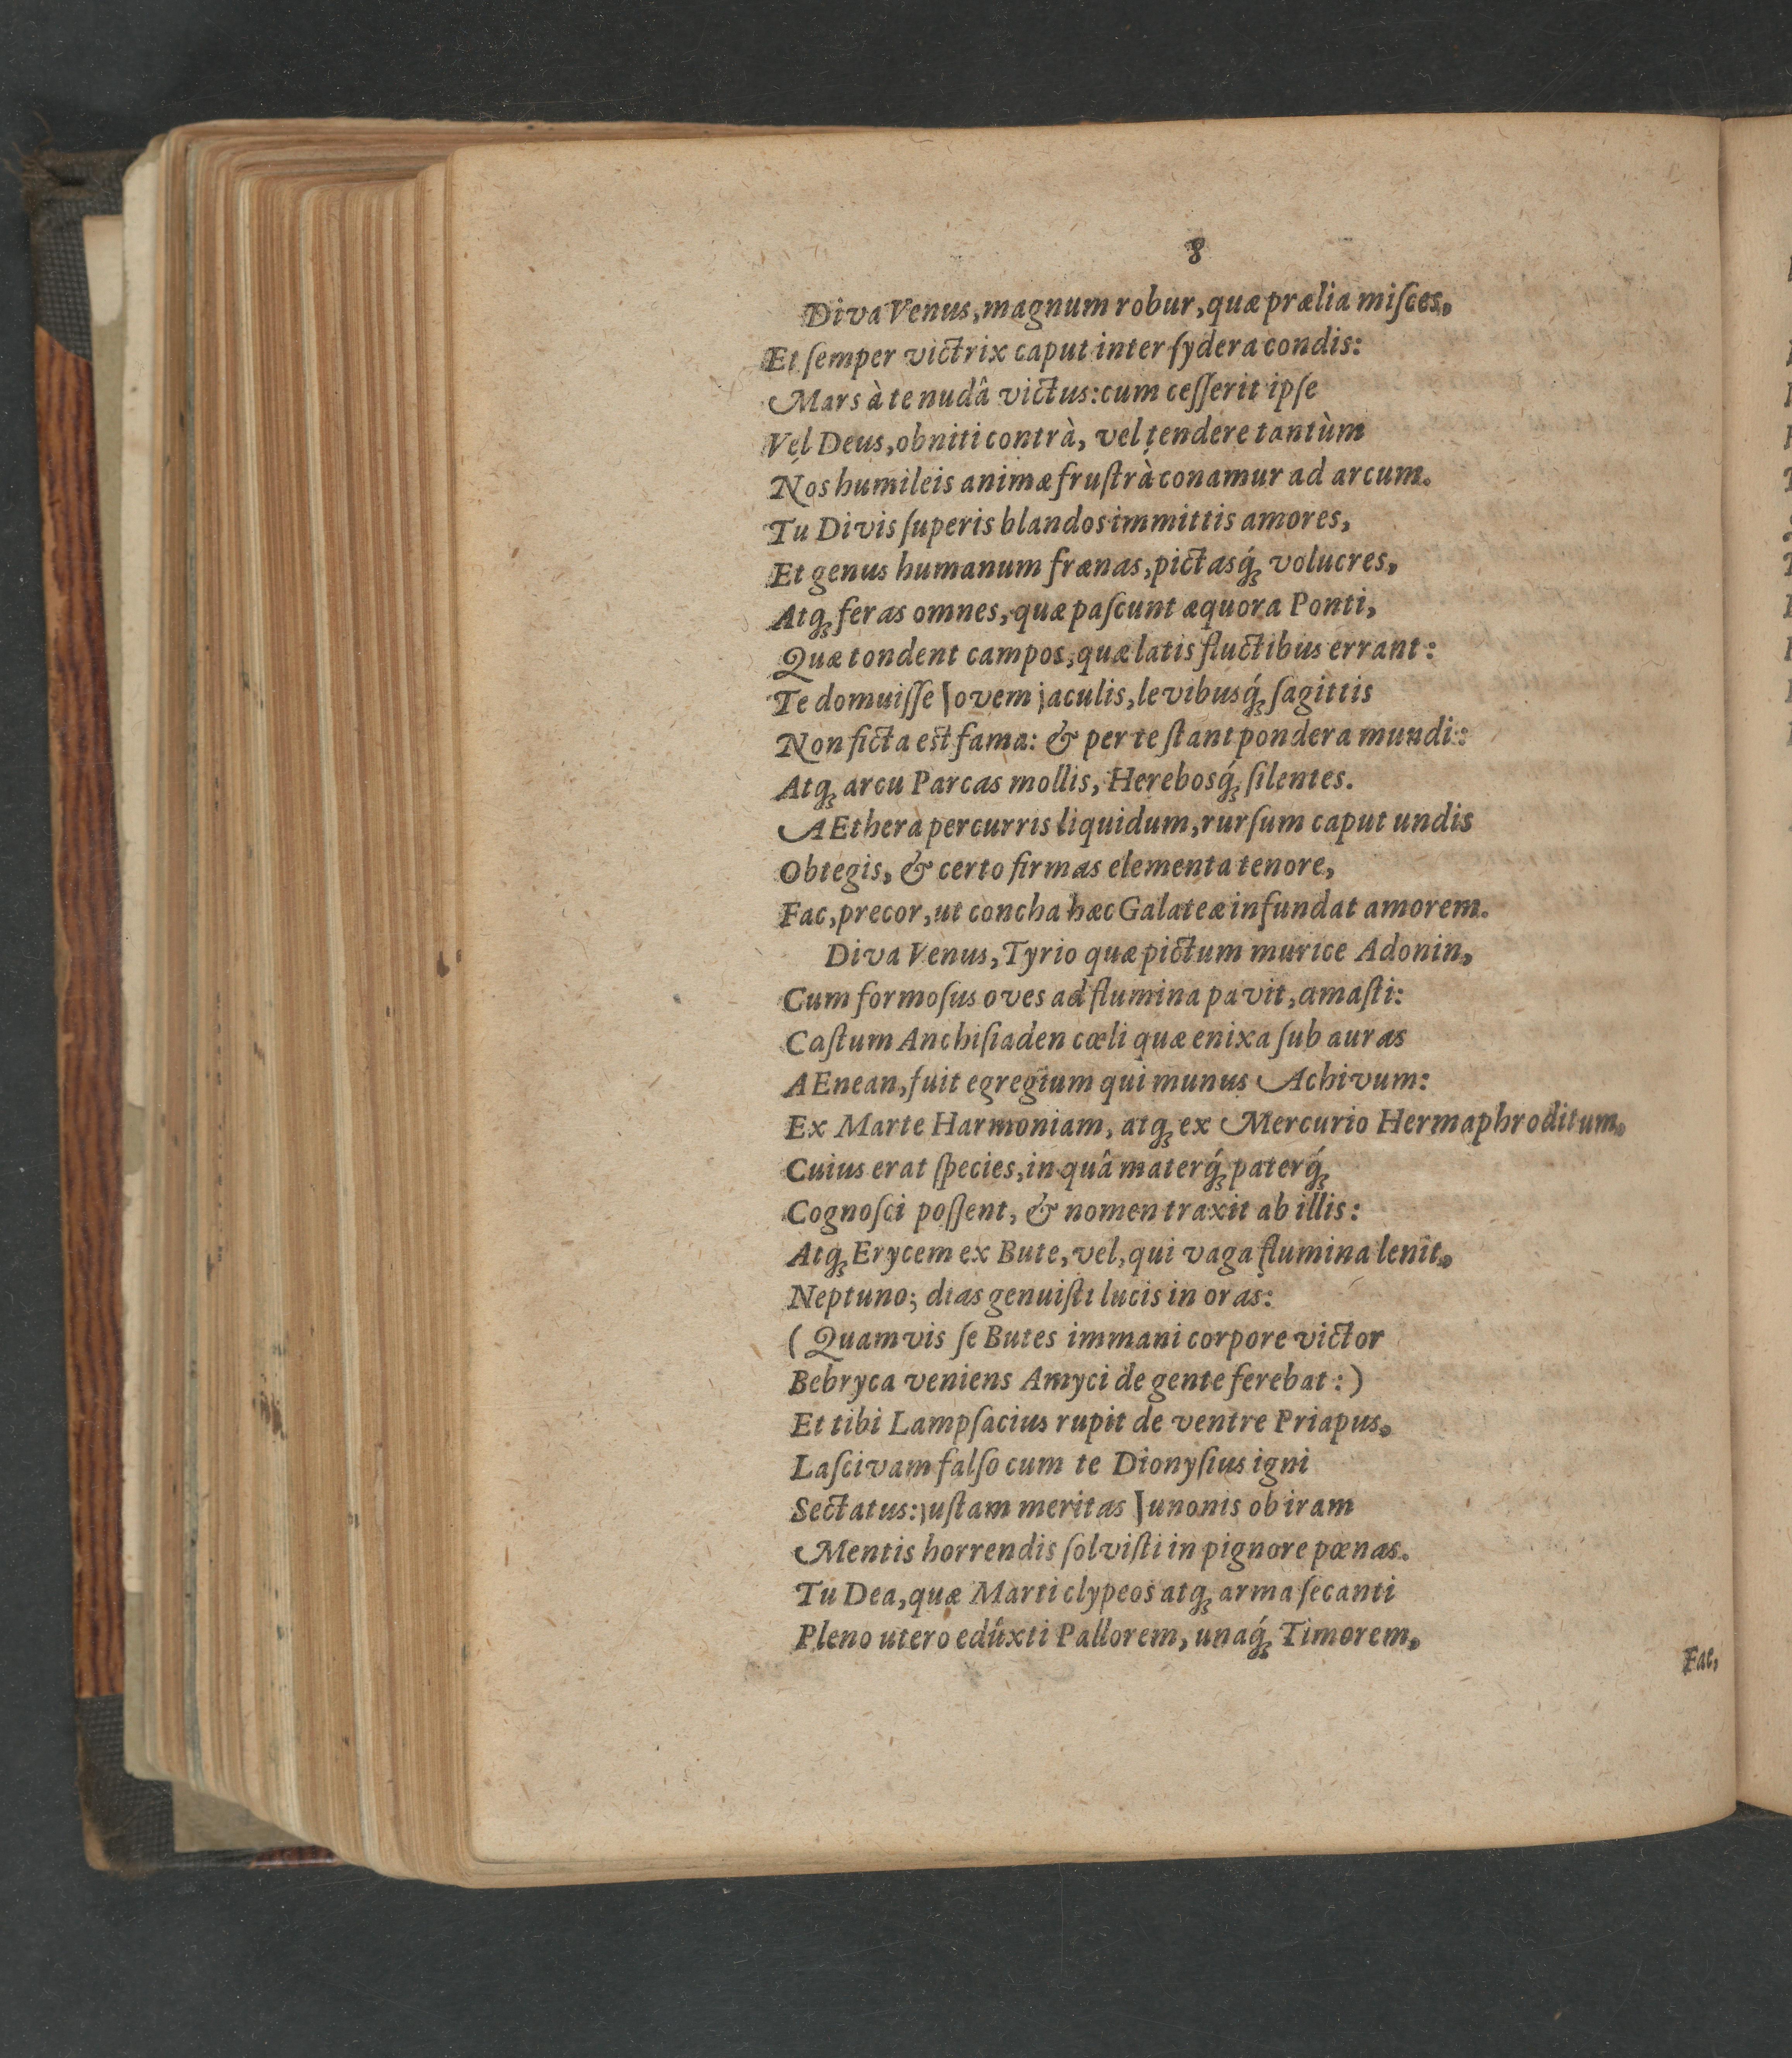 8
Diva Venus, magnum robur, quæ prælia miſces,
Et ſemper victrix caput inter ſydera condis:
Mars à te nudâ victus: cum ceſſerit ipſe
Vel Deus, obniti contrà, vel tendere tantùm
Nos humileis animæ fruſtrà conamur ad arcum.
Tu Divis ſuperis blandos immittis amores,
Et genus humanum frænas, pictasq́; volucres,
Atq; feras omnes, quæ paſcunt æquora Ponti,
Quæ tondent campos, quæ latis fluctibus errant:
Te domuiſſe Jovem jaculis, levibusq́; ſagittis
Non ficta est fama: & per te ſtant pondera mundi:
Atq; arcu Parcas mollis, Herebosq́; ſilentes.
AEthera percurris liquidum, rurſum caput undis
Obtegis, & certo firmas elementa tenore,
Fac, precor, ut concha hæc Galateæ infundat amorem.
Diva Venus, Tyrio quæ pictum murice Adonin,
Cum formoſus oves ad flumina pavit, amaſti:
Caſtum Anchiſiaden cœli quæ enixa ſub auras
AEnean, fuit egregium qui munus Achivum:
Ex Marte Harmoniam, atq; ex Mercurio Hermaphroditum,
Cuius erat ſpecies, in quâ materq́; paterq́;
Cognoſci poſſent, & nomen traxit ab illis:
Atq; Erycem ex Bute, vel, qui vaga flumina lenit,
Neptuno; dias genuiſti lucis in oras:
(Quamvis ſe Butes immani corpore victor
Bebryca veniens Amyci de gente ferebat:)
Et tibi Lampſacius rupit de ventre Priapus,
Laſcivam falſo cum te Dionyſius igni
Sectatus: juſtam meritas Junonis ob iram
Mentis horrendis ſolviſti in pignore pœnas.
Tu Dea, quæ Marti clypeos atq; arma ſecanti
Pleno utero edûxti Pallorem, unaq́; Timorem,
Fac,